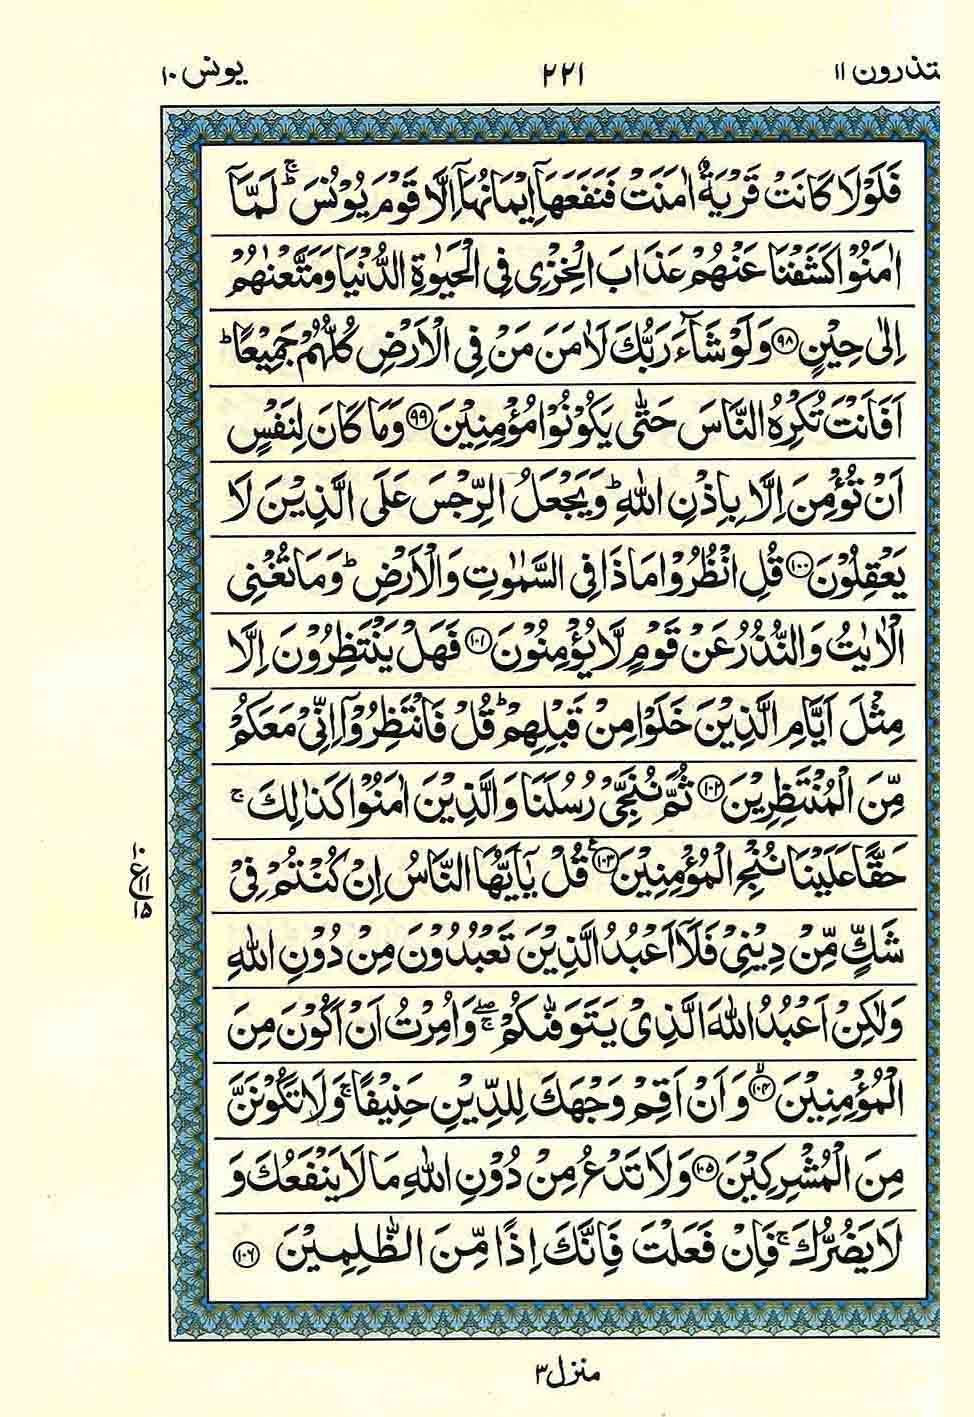 تذرون ۱۱ ۲۲۱ یونس ۱۰
فَلَوْلَا كَانَتْ قَرْيَةٌ اٰمَنَتْ فَنَفَعَهَاۤ اِيْمَانُهَاۤ اِلَّا قَوْمَ يُوْنُسَ ۚؕ لَمَّاۤ
اٰمَنُوْا كَشَفْنَا عَنْهُمْ عَذَابَ الْخِزْىِ فِى الْحَيٰوةِ الدُّنْيَا وَمَتَّعْنٰهُمْ
اِلٰى حِيْنٍ ۝۹۸ وَلَوْ شَآءَ رَبُّكَ لَاٰمَنَ مَنْ فِى الْاَرْضِ كُلُّهُمْ جَمِيْعًا ؕ
اَفَاَنْتَ تُكْرِهُ النَّاسَ حَتّٰى يَكُوْنُوْا مُؤْمِنِيْنَ ۝۹۹ وَمَا كَانَ لِنَفْسٍ
اَنْ تُؤْمِنَ اِلَّا بِاِذْنِ اللّٰهِ ؕ وَيَجْعَلُ الرِّجْسَ عَلَى الَّذِيْنَ لَا
يَعْقِلُوْنَ ۝۱۰۰ قُلِ انْظُرُوْا مَاذَا فِى السَّمٰوٰتِ وَالْاَرْضِ ؕ وَمَا تُغْنِى
الْاٰيٰتُ وَالنُّذُرُ عَنْ قَوْمٍ لَّا يُؤْمِنُوْنَ ۝۱۰۱ فَهَلْ يَنْتَظِرُوْنَ اِلَّا
مِثْلَ اَيَّامِ الَّذِيْنَ خَلَوْا مِنْ قَبْلِهِمْ ؕ قُلْ فَانْتَظِرُوْۤا اِنِّىْ مَعَكُمْ
مِّنَ الْمُنْتَظِرِيْنَ ۝۱۰۲ ثُمَّ نُنَجِّىْ رُسُلَنَا وَالَّذِيْنَ اٰمَنُوْا كَذٰلِكَ ۚ
حَقًّا عَلَيْنَا نُنْجِ الْمُؤْمِنِيْنَ ۝۱۰۳ قُلْ يٰۤاَيُّهَا النَّاسُ اِنْ كُنْتُمْ فِىْ
۱۰ ع ۱۱ ۱۵
شَكٍّ مِّنْ دِيْنِىْ فَلَاۤ اَعْبُدُ الَّذِيْنَ تَعْبُدُوْنَ مِنْ دُوْنِ اللّٰهِ
وَلٰكِنْ اَعْبُدُ اللّٰهَ الَّذِىْ يَتَوَفّٰىكُمْ ۖۚ وَاُمِرْتُ اَنْ اَكُوْنَ مِنَ
الْمُؤْمِنِيْنَ ۙ۝۱۰۴ وَاَنْ اَقِمْ وَجْهَكَ لِلدِّيْنِ حَنِيْفًا ۚ وَلَا تَكُوْنَنَّ
مِنَ الْمُشْرِكِيْنَ ۝۱۰۵ وَلَا تَدْعُ مِنْ دُوْنِ اللّٰهِ مَا لَا يَنْفَعُكَ وَ
لَا يَضُرُّكَ ۚ فَاِنْ فَعَلْتَ فَاِنَّكَ اِذًا مِّنَ الظّٰلِمِيْنَ ۝۱۰۶
منزل ۳